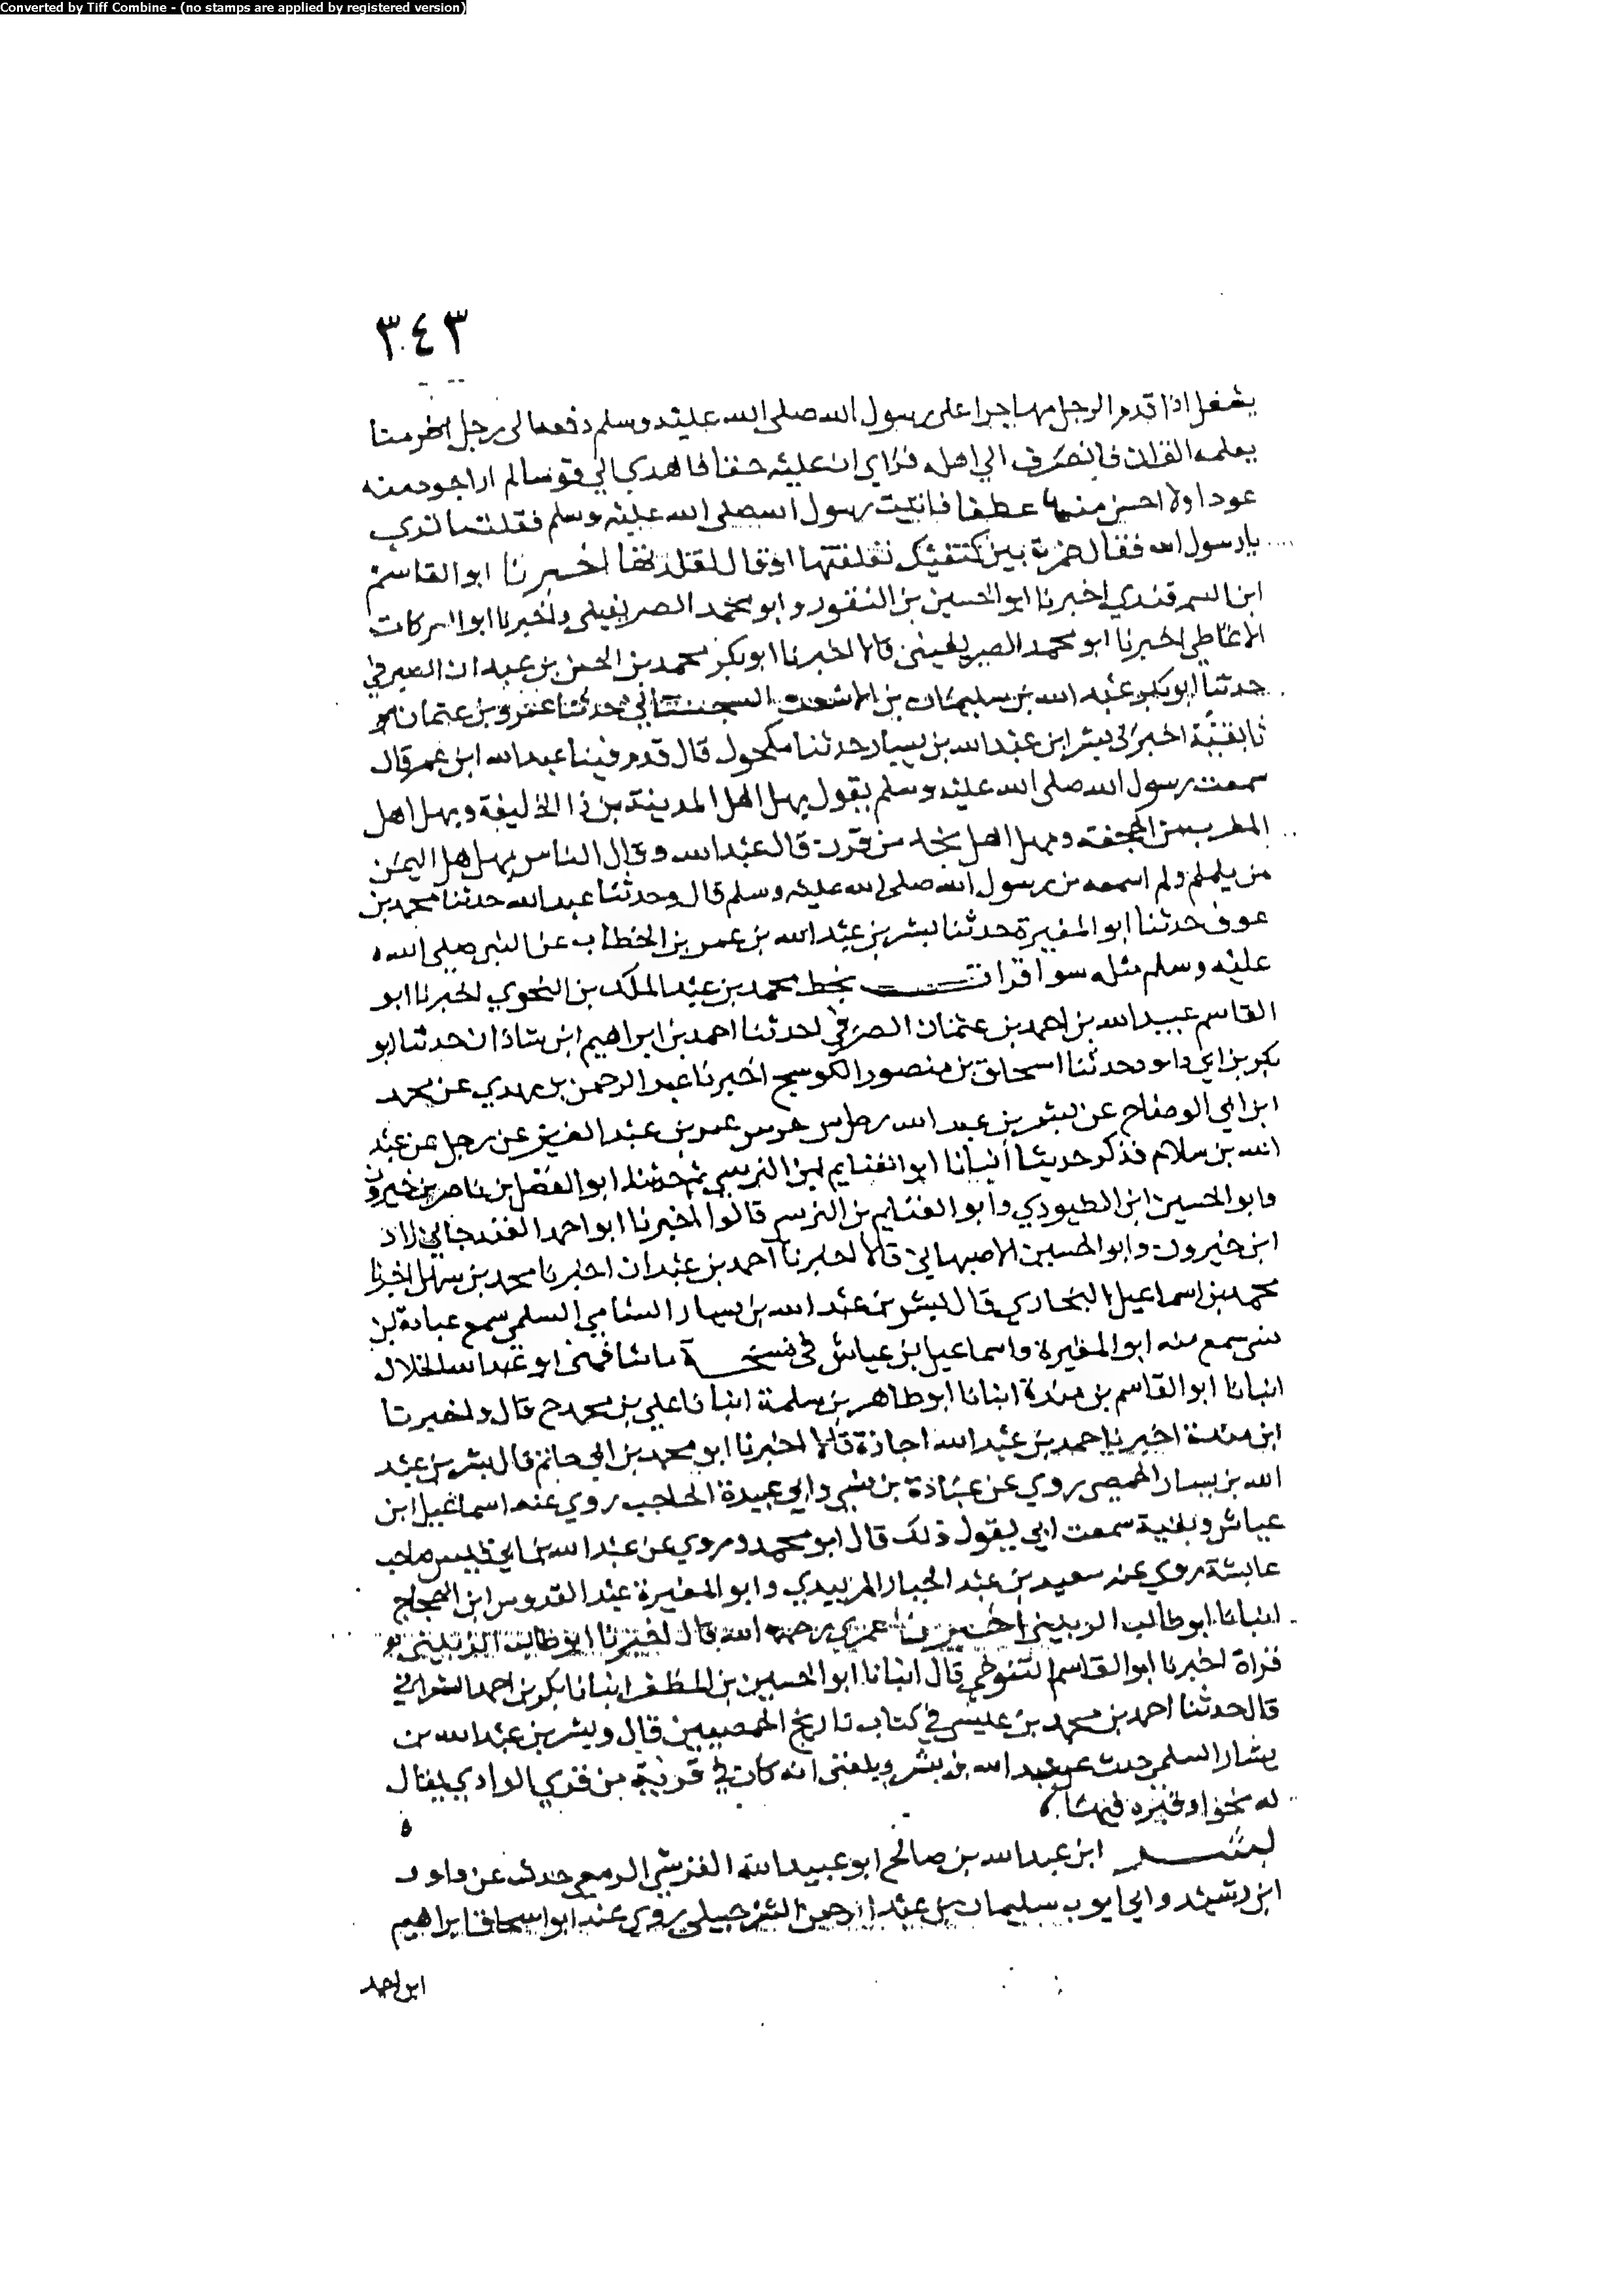 Converted by Tiff Combine - (no stamps are applied by registered version)
٣٤٣
يشغل اذا قدم الرجل مهاجرا على رسول الله صلى الله عليه وسلم دفعه الى رجل اخر منا
يعلمه القران فانصرف الي اهله فراي ان عليه حقا فاهدي الي قوسا لم ار اجود منه
عودا ولا احسن منها عطفا فاتيت رسول الله صلى الله عليه وسلم فقلت ما تري
يا رسول الله فقال جمرة بين كتفيك تقلدتها او قال تقلدها اخبرنا ابو القاسم
ابن السمرقندي اخبرنا ابو الحسين بن النقور وابو محمد الصريفيني واخبرنا ابو البركات
الانماطي اخبرنا ابو محمد الصريفيني قالا اخبرنا ابو بكر محمد بن الحسن بن عبدان الصيرفي
حدثنا ابو بكر عبد الله بن سليمان بن الاشعث السجستاني حدثنا عمرو بن عثمان
ثنا بقية اخبرني بشر ابن عبد الله بن يسار حدثنا مكحول قال قدم فينا عبد الله ابن عمر قال
سمعت رسول الله صلى الله عليه وسلم يقول يهل اهل المدينة من ذا الحليفة ويهل اهل
المغرب من الجحفة ويهل اهل نجد من قرن قال عبد الله وقال الناس يهل اهل اليمن
من يلملم ولم اسمعه من رسول الله صلى الله عليه وسلم قال وحدثنا عبد الله حدثنا محمد بن
عوف حدثنا ابو المغيرة حدثنا بشر بن عبد الله بن عمر بن الخطاب عن النبي صلى الله
عليه وسلم مثله سوا قرات بخط محمد بن عبد الملك بن النحوي اخبرنا ابو
القاسم عبيد الله بن احمد بن عثمان الصرفي حدثنا احمد بن ابراهيم ابن شاذان حدثنا ابو
بكر بن ابي داود حدثنا اسحاق بن منصور الكوسج اخبرنا عبد الرحمن بن مهدي عن محمد
ابن ابي الوضاح عن بشر بن عبد الله رجل من حرس عمر بن عبد العزيز عن رجل عن عبد
الله بن سلام فذكر حديثا أنبانا ابو الغنايم ابن النرسي ثم حدثنا ابو الفضل بن ناصر بن خيرون
وابو الحسين ابن الطيوري وابو الغنايم بن النرسي قالوا اخبرنا ابو احمد الغندجاني زاد
ابن خيرون وابو الحسين الاصبهاني قالا اخبرنا احمد بن عبدان اخبرنا محمد بن سهل اخبرنا
محمد بن اسماعيل البخاري قال بشر بن عبد الله بن يسار الشامي السلمي سمع عبادة بن
نسي سمع منه ابو المغيرة واسماعيل بن عياش في نسخة ما شافهني ابو عبد الله الخلال
انبانا ابو القاسم بن مندة انبانا ابو طاهر بن سلمة انبانا علي بن محمد ح قال واخبرنا
ابن مندة اخبرنا احمد بن عبد الله اجازة قالا اخبرنا ابو محمد بن ابي حاتم قال بشر بن عبد
الله بن يسار الحمصي روي عن عبادة بن نسي وابي عبيدة الحاجب روي عنه اسماعيل ابن
عياش وبقية سمعت ابي يقول ذلك قال ابو محمد وروي عن عبد الله بن ابي قيس صاحب
عايشة روي عنه سعيد بن عبد الجبار الزبيدي وابو المغيرة عبد القدوس ابن الحجاج
انبانا ابو طالب الزينبي اخبرنا عمي رحمه الله قال اخبرنا ابو طالب الزينبي
قراة اخبرنا ابو القاسم التنوخي قال انبانا ابو الحسين بن المظفر انبانا بكر بن احمد الشعراني
قال حدثنا احمد بن محمد بن عيسى في كتاب تاريخ الحمصيين قال وبشر بن عبد الله بن
يشار السلمي حدث عن عبد الله بن بشر وبلغني انه كان في قرية من قري الوادي يقال
له نخوا وقبره فيها
بشر ابن عبد الله بن صالح ابو عبيد الله القرشي الرمعي حدث عن داود
ابن رشيد وابي ايوب سليمان بن عبد الرحمن الشرحبيلي روي عنه ابو اسحاق ابراهيم
ابن احمد